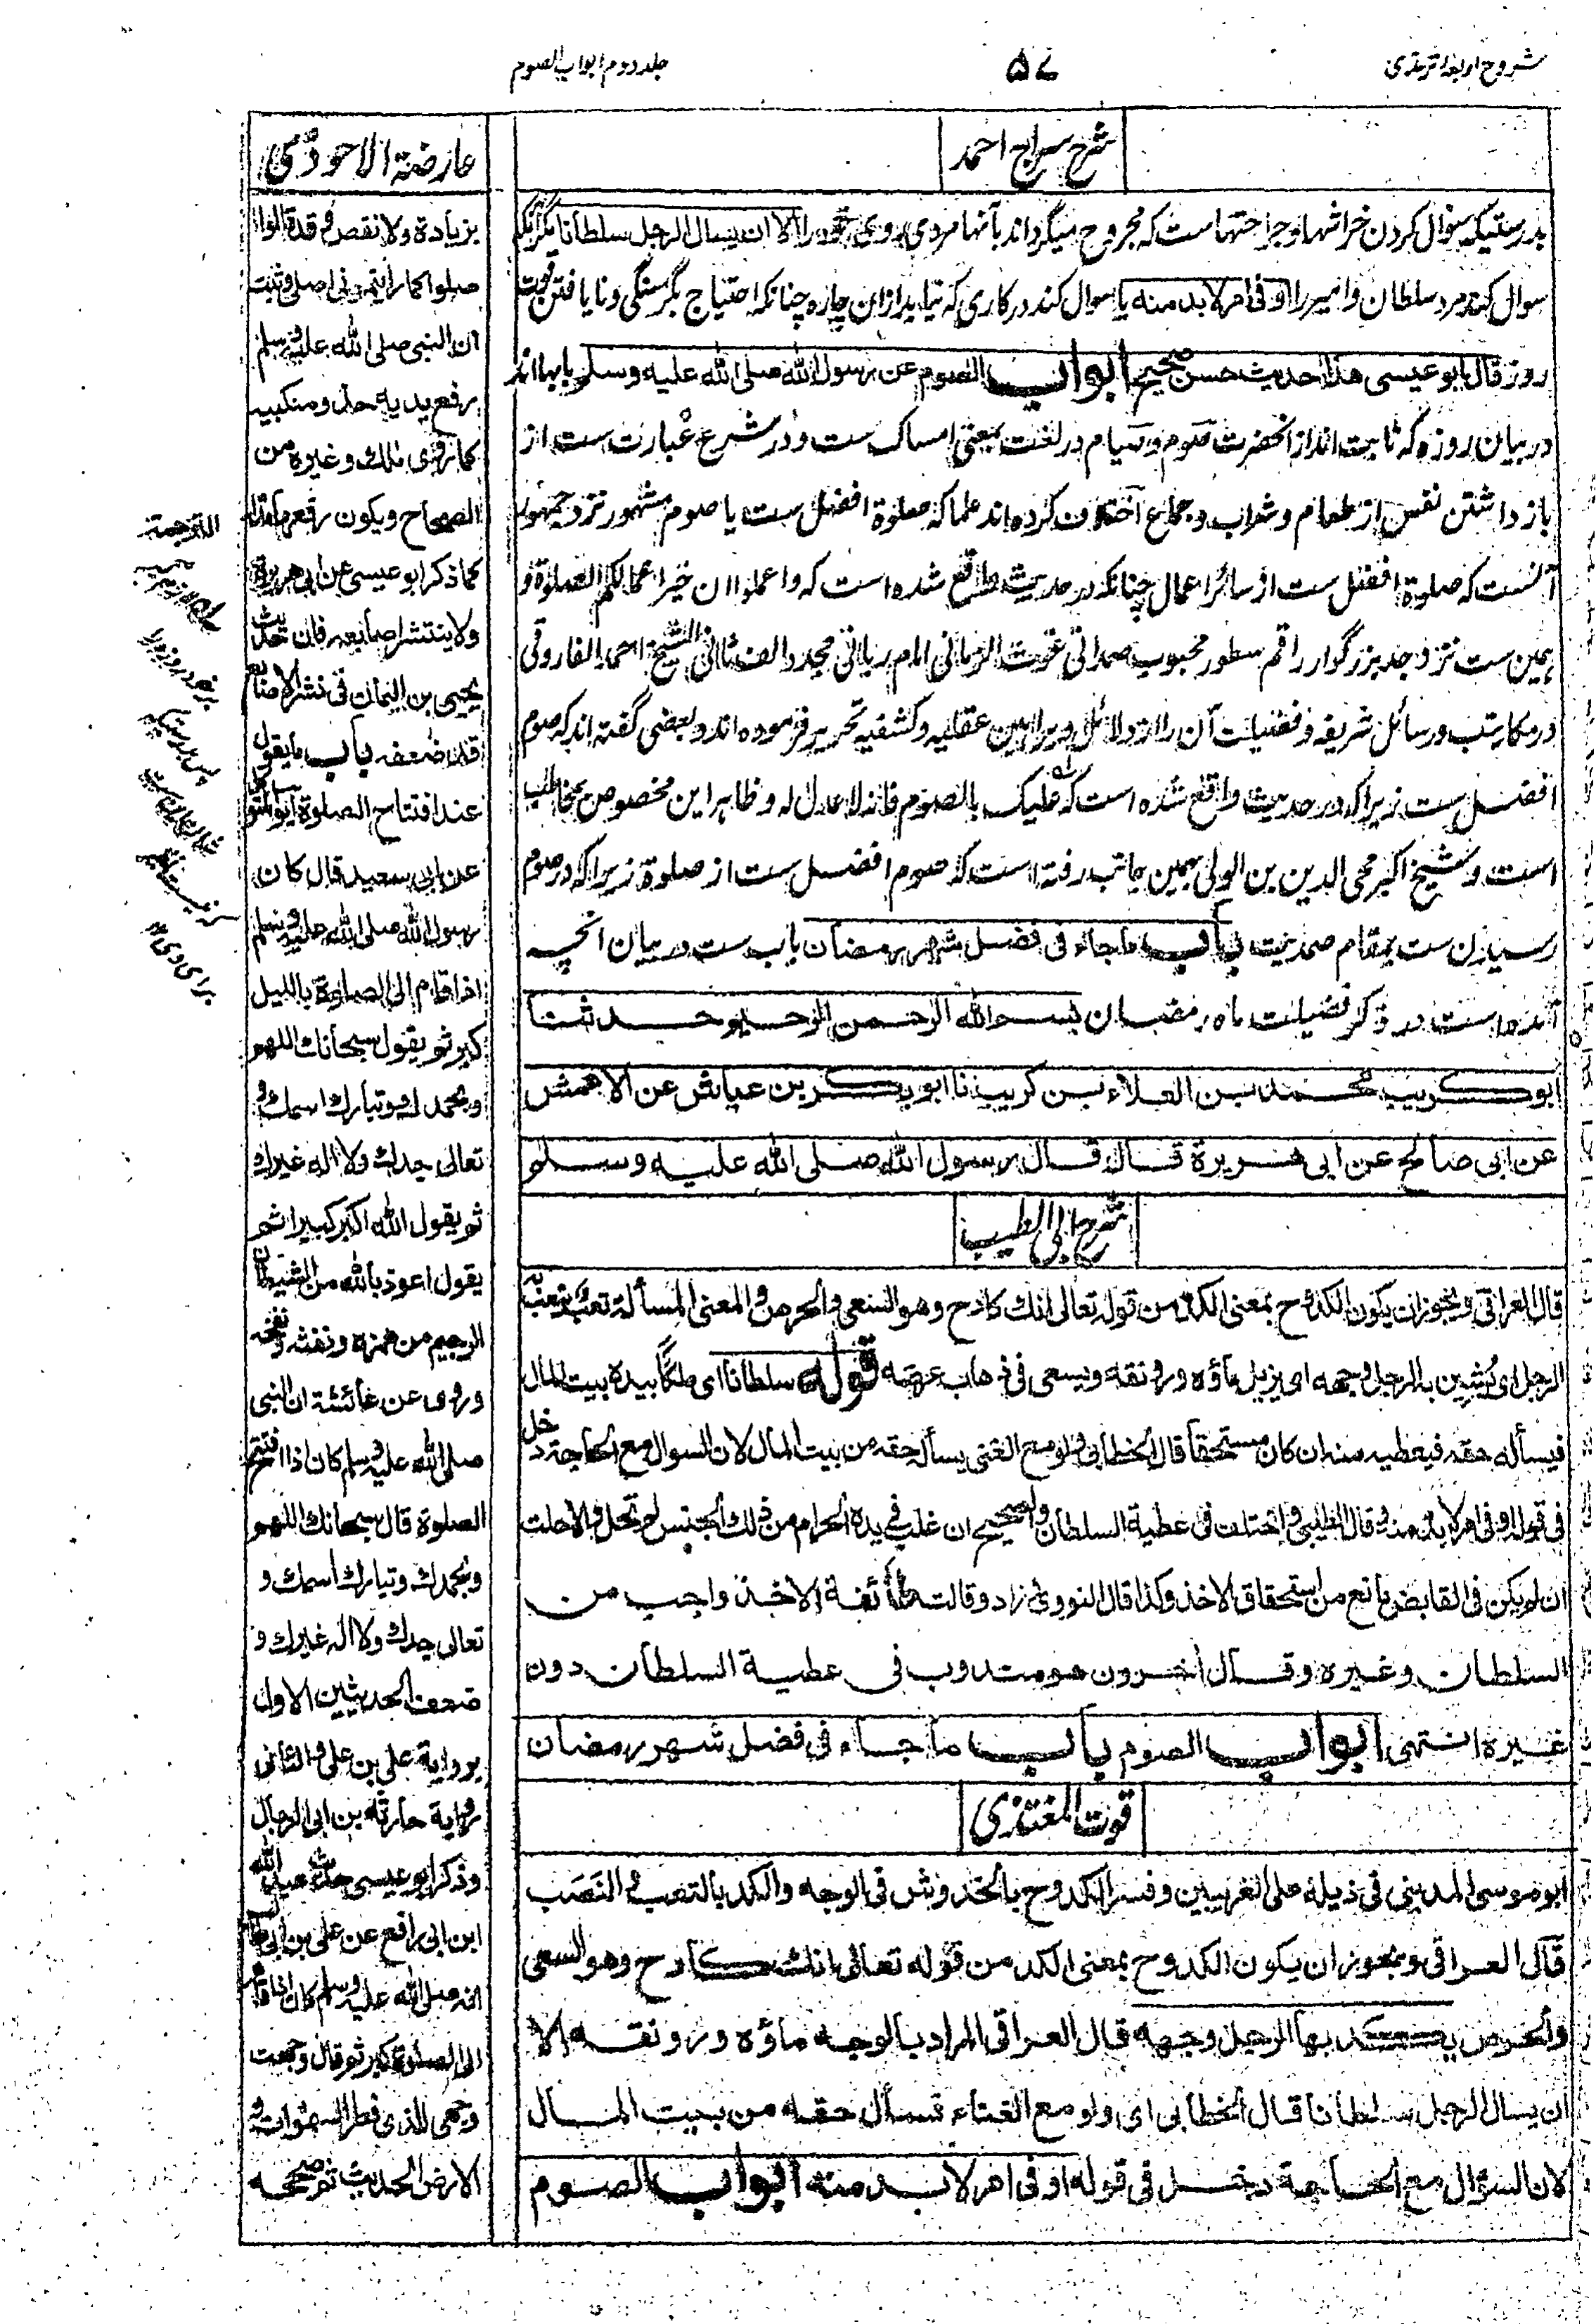 شروح اربعه ترمذی
۵۷
جلد دوم ابواب الصوم
شرح سراج احمد
بدرستیکه سوال کردن خراشها و جراحتها است که مجروح میگرداند بآنها مردی روی خود را الا ان یسال الرجل سلطانا مگر آنکه
سوال کند مرد سلطان و امیر را او فی امر لابد منه یا سوال کند در کاری که نباید از ان چاره چنانکه احتیاج بگرسنگی و نایافتن قوت
روز قال ابو عیسی هذا حدیث حسن صحیح ابواب الصوم عن رسول الله صلی الله علیه وسلم بابها اند
در بیان روزه که ثابت اند از انحضرت صوم و صیام در لغت بمعنی امساک ست و در شرع عبارت ست از
باز داشتن نفس از طعام و شراب و جماع اختلاف کرده اند علما که صلوة افضل ست یا صوم مشهور نزد جمهور
آنست که صلوة افضل ست از سائر اعمال چنانکه در حدیث واقع شده است که واعملوا ان خیر اعمالکم الصلوة و
همین ست نزد جد بزرگوار راقم سطور محبوب صمدانی غوث الزمانی امام ربانی مجدد الف ثانی الشیخ احمد الفاروقی
در مکاتیب و رسائل شریفه و فضیلت آن را از دلائل و براهین عقلیه و کشفیه تحریر فرموده اند و بعضی گفته اند که صوم
افضل ست زیرا که در حدیث واقع شده است که علیک بالصوم فانه لا عدل له و ظاهر این مخصوص بمخاطب
است و شیخ اکبر محی الدین بن الولی بهمین جانب رفته است که صوم افضل ست از صلوة زیرا که در صوم
رسیدن ست بمقام صمدیت باب ما جاء فی فضل شهر رمضان باب ست در بیان انچه
آمده است در ذکر فضیلت ماه رمضان بسم الله الرحمن الرحیم حدثنا
ابو کریب محمد بن العلاء بن کریب نا ابو بکر بن عیاش عن الاعمش
عن ابی صالح عن ابی هریرة قال قال رسول الله صلی الله علیه وسلم
شرح ابی الطیب
قال العراقی ویجوز ان یکون الکدوح بمعنی الکد من قوله تعالی انک کادح وهو السعی والحرص والمعنی المسألة تعب یتعب به
الرجل ای یشین به الرجل وجهه ای یزیل ماؤه ورونقه ویسعی فی ذهاب عرضه قوله سلطانا ای ملکا بیده بیت المال
فیسأله حقه فیعطیه منه ان کان مستحقا قال الخطابی ولو مع الغنی یسأل حقه من بیت المال لان السوال مع الحاجة دخل
فی قوله او فی امر لا بد منه وقال الطیبی واختلف فی عطیة السلطان والصحیح ان غلب فی یده الحرام من ذلک الجنس لم تحل والا حلت
ان لم یکن فی القابض مانع من استحقاق الاخذ وکذا قال النووی زاد وقالت طائفة الاخذ واجب من
السلطان وغیره وقال اخرون هو مندوب فی عطیة السلطان دون
غیره انتهی ابواب الصوم باب ما جاء فی فضل شهر رمضان
قوت المغتذی
ابو موسی المدینی فی ذیله علی الغریبین وفسر الکدوح بالخدوش فی الوجه والکد بالتعب و النصب
قال العراقی ویجوز ان یکون الکدوح بمعنی الکد من قوله تعالی انک کادح وهو السعی
والحرص یکد بها الرجل وجهه قال العراقی المراد بالوجه ماؤه ورونقه الا
ان یسال الرجل سلطانا قال الخطابی ای ولو مع الغناء تسأل حقه من بیت المال
لان السؤال مع الحاجة دخل فی قوله او فی امر لابد منه ابواب الصوم
عارضة الاحوذی
بزیادة ولا نقص وقد قالوا
صلوا کما رأیتمونی اصلی وثبت
ان النبی صلی الله علیه وسلم
رفع یدیه حذو منکبیه
کما روی مالک وغیره من
الصحاح ویکون رفعهما مدا
کما ذکر ابو عیسی عن ابی هریرة
ولا ینتشر اصابعه فان حدیث
یحیی بن الیمان فی نشر الاصابع
قد اضعفه باب ما یقول
عند افتتاح الصلوة ابو المتوکل
عن ابی سعید قال کان
رسول الله صلی الله علیه وسلم
اذا قام الی الصلوة باللیل
کبر ثم یقول سبحانک اللهم
وبحمدک وتبارک اسمک و
تعالی جدک ولا اله غیرک
ثم یقول الله اکبر کبیرا ثم
یقول اعوذ بالله من الشیطان
الرجیم من همزه ونفثه ونفخه
وروی عن عائشة ان النبی
صلی الله علیه وسلم کان اذا افتتح
الصلوة قال سبحانک اللهم
وبحمدک وتبارک اسمک و
تعالی جدک ولا اله غیرک و
ضعف الحدیثین الاول
بروایة علی بن علی والثانی
روایة حارثه بن ابی الرجال
وذکر ابو عیسی حدیث عبید الله
ابن ابی رافع عن علی بن ابی طالب
انه صلی الله علیه وسلم کان اذا قام
الی الصلوة کبر ثم قال وجهت
وجهی للذی فطر السموات و
الارض الحدیث ثم صححه
الترجمة
برای وی